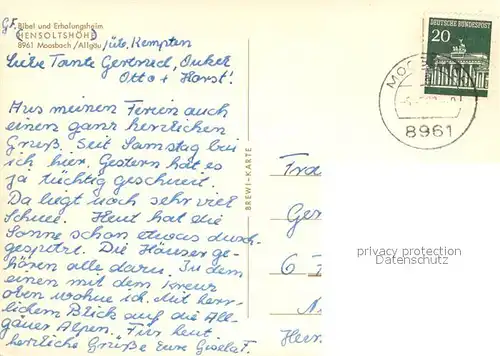 G.F.
Bibel und Erholungsheim
HENSOLTSHÖHE
8961 Moosbach/Allgäu /üb. Kempten
Liebe Tante Gertrud, Onkel
Otto + Horst!
Aus meinen Ferien auch
einen ganz herzlichen
Gruß. Seit Samstag bin
ich hier. Gestern hat es
ja tüchtig geschneit.
Da liegt noch sehr viel
Schnee. Heut hat die
Sonne schon etwas durch-
gespitzt. Die Häuser ge-
hören alle dazu. In dem
einen mit dem Kreuz
oben wohne ich. Mit herr-
lichem Blick auf die All-
gäuer Alpen. Für heut
herzliche Grüße Eure Gisela F.
BREWI-KARTE
DEUTSCHE BUNDESPOST
20
MOOS
8961
Fra
Ger
6
N
Herr
privacy protection
Datenschutz